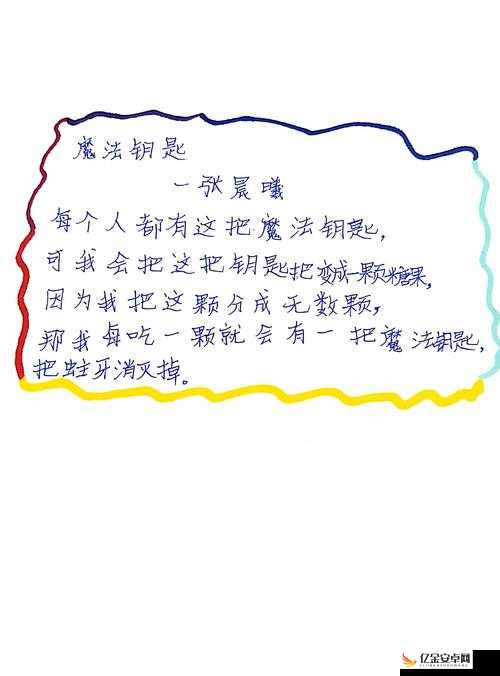 魔法钥匙
一张晨曦
每个人都有这把魔法钥匙，
可我会把这把钥匙把变成一颗糖果，
因为我把这颗分成无数颗，
那我每吃一颗就会有一把魔法钥匙，
把蛀牙消灭掉。
亿金安卓网